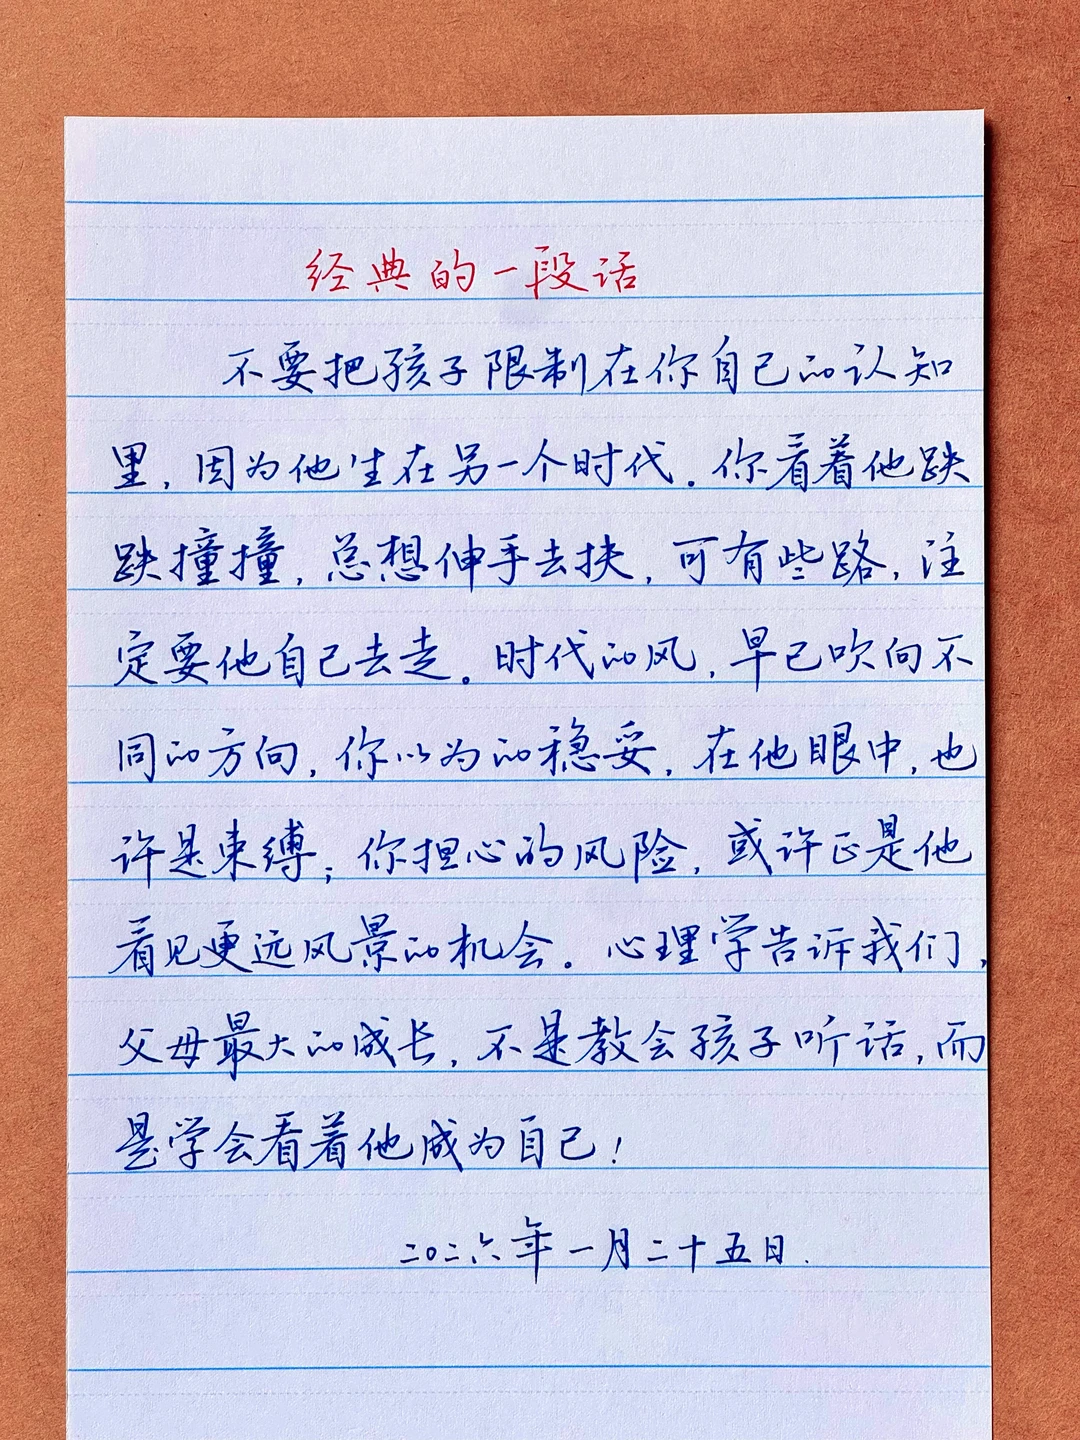 经典的一段话
不要把孩子限制在你自己的认知
里，因为他生在另一个时代。你看着他跌
跌撞撞，总想伸手去扶，可有些路，注
定要他自己去走。时代的风，早已吹向不
同的方向，你以为的稳妥，在他眼中，也
许是束缚；你担心的风险，或许正是他
看见更远风景的机会。心理学告诉我们，
父母最大的成长，不是教会孩子听话，而
是学会看着他成为自己！
二〇二六年一月二十五日.